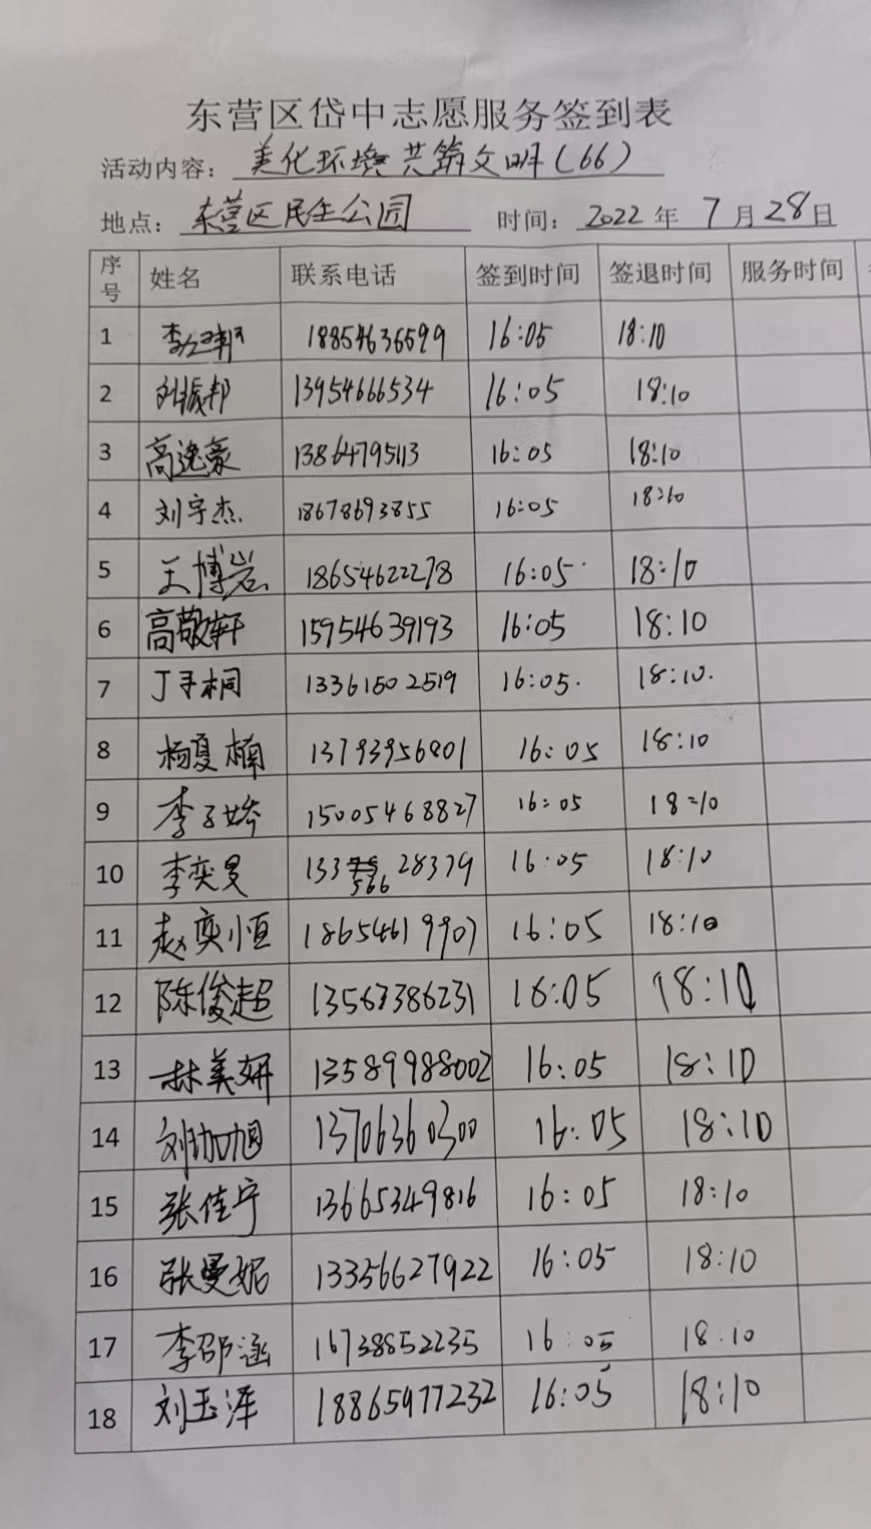 东营区岱中志愿服务签到表
活动内容：美化环境 共筑文明（66）
地点：东营区民生公园 时间：2022年7月28日
序号 姓名 联系电话 签到时间 签退时间 服务时间
1 18854636599 16:05 18:10
2 刘振邦 13954666534 16:05 18:10
3 高逸豪 13864795113 16:05 18:10
4 刘宇杰 18678693855 16:05 18:10
5 王博岩 18654622278 16:05 18:10
6 高敬轩 15954639193 16:05 18:10
7 丁子桐 13361502519 16:05 18:10
8 杨夏楠 13793956801 16:05 18:10
9 李子娇 15005468827 16:05 18:10
10 李奕旻 13356628379 16:05 18:10
11 赵奕恒 18654619907 16:05 18:10
12 陈俊超 13563386231 16:05 18:10
13 林美妍 13589988002 16:05 18:10
14 刘珈旭 13706360300 16:05 18:10
15 张佳宁 13665349816 16:05 18:10
16 张曼妮 13356627922 16:05 18:10
17 李邵涵 16738852235 16:05 18:10
18 刘玉泽 18865977232 16:05 18:10